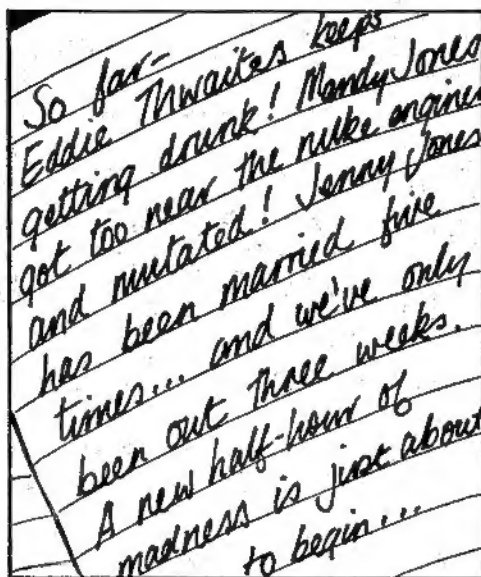 So far-
Eddie Thwaites keeps
getting drunk! Mandy Jones
got too near the nuke engines
and mutated! Jenny Jones
has been married five
times... and we've only
been out three weeks.
A new half-hour of
madness is just about
to begin...